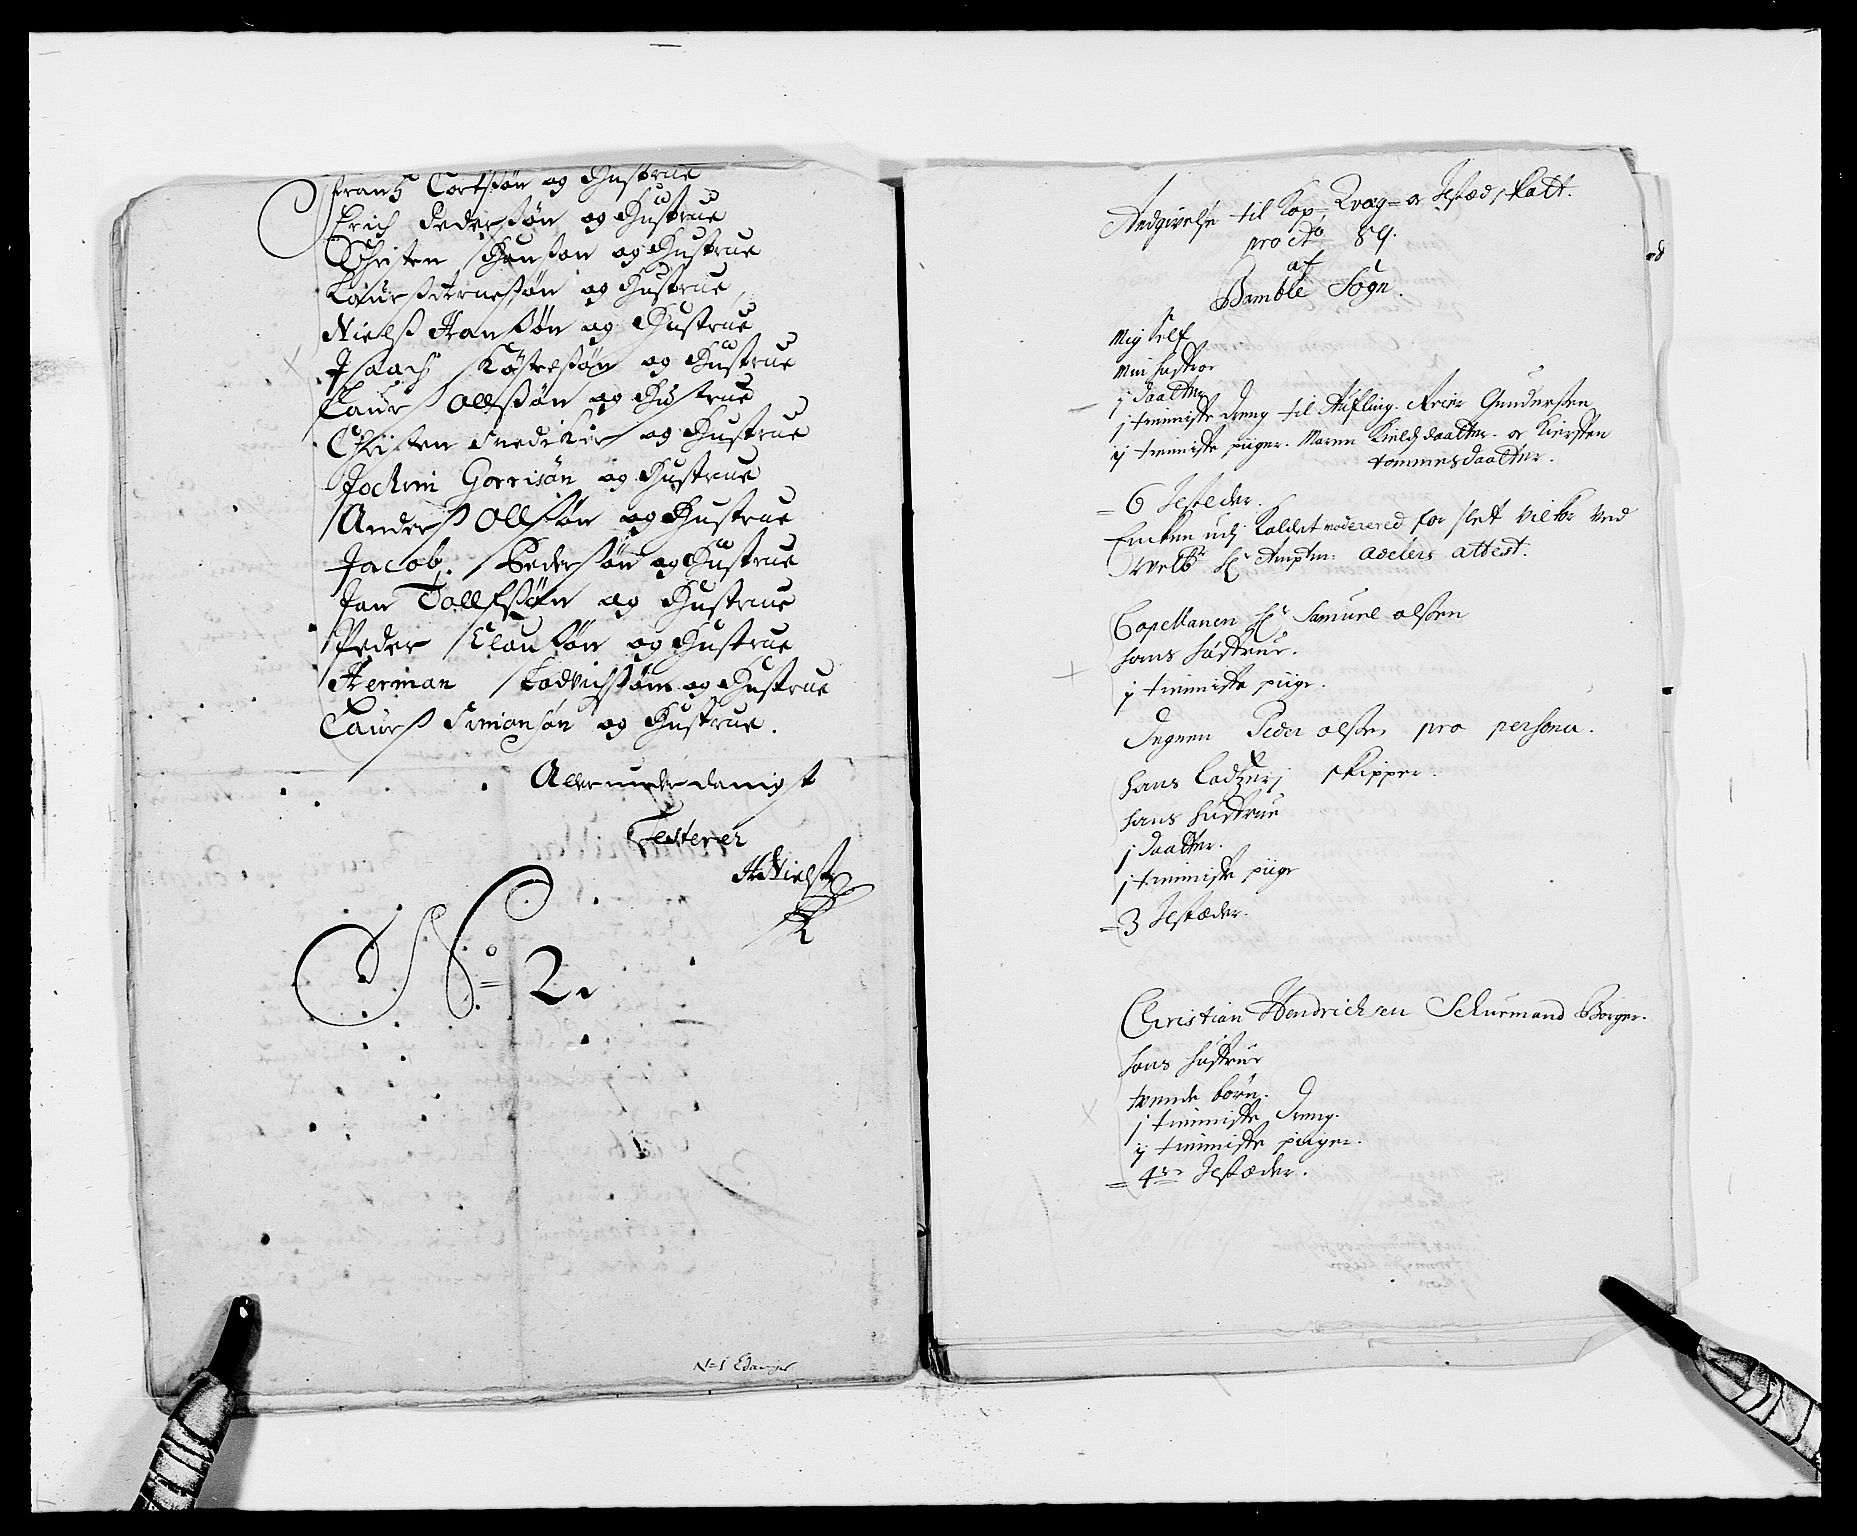 Frantz Cortsøn og Hustrue
Erich Pedersøn og Hustrue
Christen Hansøn og Hustrue
Laurs Arnesøn og Hustrue
Niels Hansøn og Hustrue
Isaach og Hustrue
Laurs Ollsøn og Hustrue
Christen og Hustrue
Jochim Gorrisøn og Hustrue
Anders Ollsøn og Hustrue
Jacob Pedersøn og Hustrue
Jan Tollefsøn og Hustrue
Peder Clausøn og Hustrue
Herman Lodvichsøn og Hustrue
Laurs Simonsøn og Hustrue.
Allerunderdanigst
Testerer
HNielsen
No 2
N=1
Andgivelse til Kop=, Qvæg= oc Ildstæd skatt.
pro Ao 89.
af
Bamble Sogn.
Mig self
Min hustroe
ij Daatter
j tienniste dreng til Aufling. Reier Gundersen
ij tienniste piiger. Maren Kieldsdaatter. oc Kiersten
tommesdaatter.
= 6 Ildsteder.
Encken udj Kaldet moderered for slet vilkor ved
Welbr Hr Amptm: Adelers attest.
Capellanen Hr Samuel olsen
hans hustrue.
ij tienniste piige.
Ingnen Peder olsen pro persona.
hans skipper.
hans hustrue
j daatter.
j tienniste piige
= 3 Ildstæder.
Christian Hendrichsen Schurmand Borger.
hans hustrue
trende børn.
j tienniste dreng.
ij tienniste piiger.
= 4re Ildstæder.